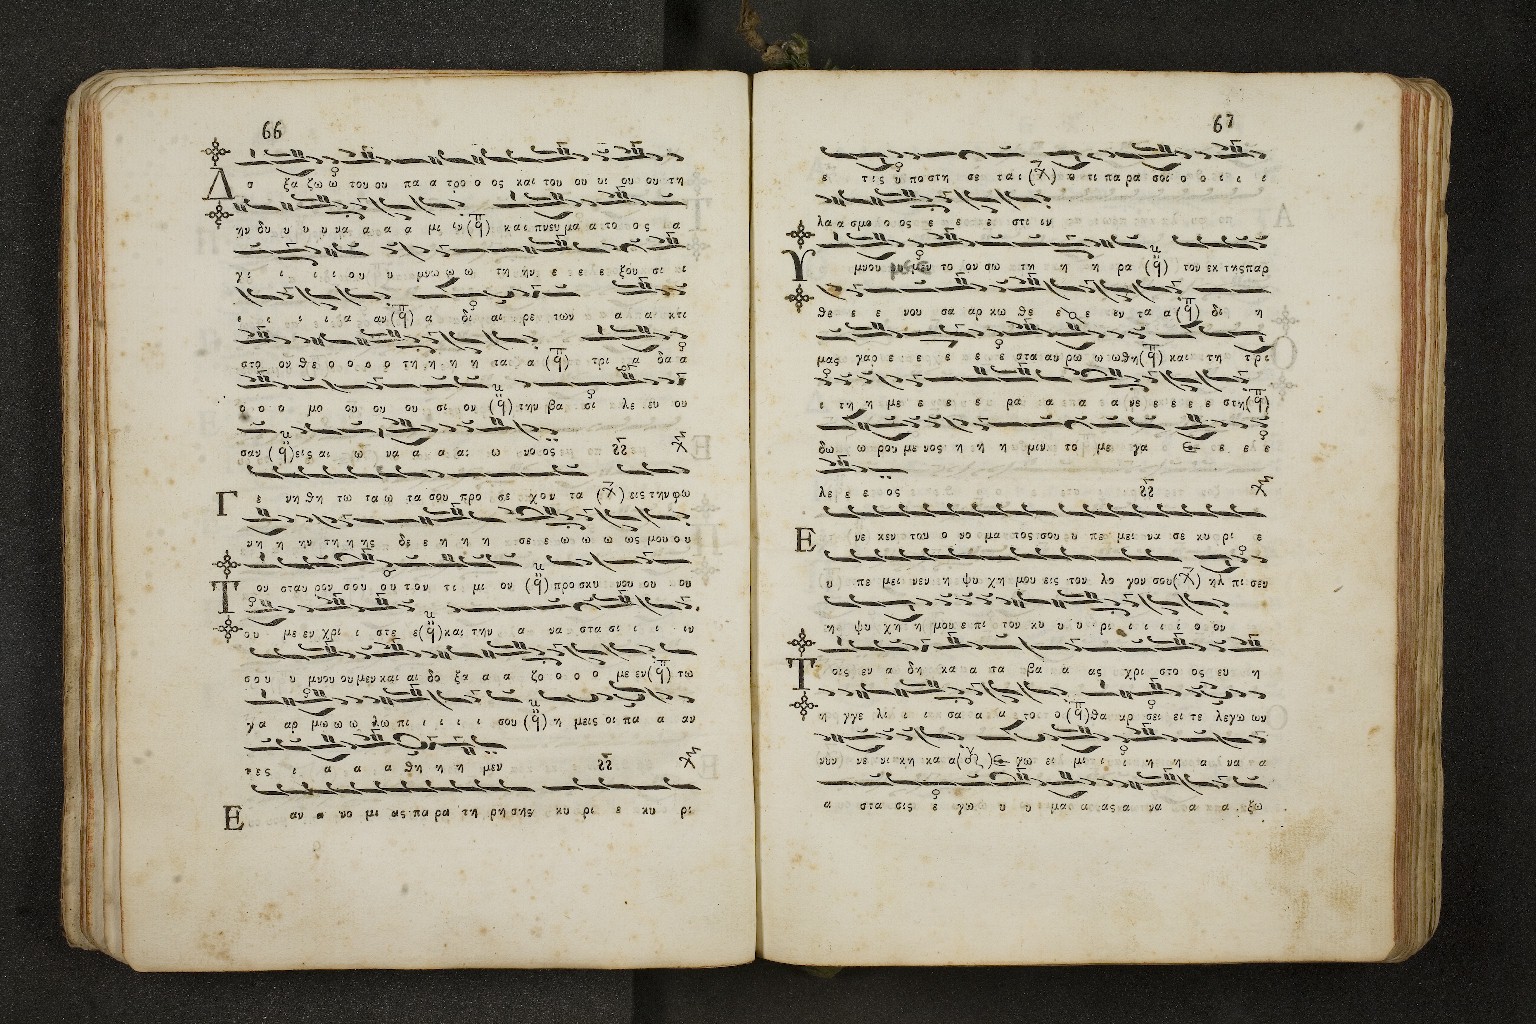 66
Δ ο ξα ζω ω του ου πα α τρο ο ος και του ου υι ου ου τη
ην δυ υ υ υ να α α α μι ιν (q̈) και πνευ μα α το ο ος α
γι ι ι ι ου υ μνω ω ω τη ην ε ε ε ξου σι ι
ι ι ι ι α αν (q̈) α δι αι ρε των α α κτι
στο ον θε ο ο ο ο τη η η η τα α α (q̈) τρι α δα α
ο ο ο μο ου ου ου σι ον (q̈) την βα σι λε ευ ου
σαν (q̈) εις αι ω να α α α αι ω νο ος
Γ ε νη θη τω τα ω τα σου προ σε χον τα (χ) εις την φω
νη η ην τη η ης δε ε η η η σε ε ω ω ω ως μου ου
Τ ον σταυ ρον σου ου τον τι μι ον (q̈) προ σκυ νου ου ου
ου με εν χρι ι στε ε (q̈) και την α να στα σι ι ι ιν
σου υ μνου ου μεν και αι δο ξα α α ζο ο ο ο με εν (q̈) τω
γα αρ μω ω ω λω πι ι ι ι ι σου (q̈) η μεις οι πα α αν
τες ι α α α θη η η μεν
Ε αν α νο μι ας πα ρα τη ρη σης κυ ρι ε κυ ρι
67
ε τις υ πο στη σε ται (χ) ο τι πα ρα σοι ο ο ι ι ι
λα α σμο ο ος ε ε ε ε στι ιν
Υ μνου ου μεν το ον σω τη η η ρα (q̈) τον εκ της παρ
θε ε ε νου σα αρ κω θε ε ε ε εν τα α (q̈) δι η
μας γαρ ε ε ε ε ε ε στα αυ ρω ω ω θη (q̈) και τη τρι
ι τη η με ε ε ε ε ρα α α α α νε ε ε ε ε στη (q̈)
δω ω ρου με νος η η η μιν το με γα ε ε ε
λε ε ε ος
Ε νε κεν του ο νο μα τος σου υ πε μει να σε κυ ρι ε
υ πε μει νεν η ψυ χη μου εις τον λο γον σου (χ) ηλ πι σεν
η ψυ χη η μου ε πι τον κυ υ υ ρι ι ι ι ο ον
Τ οις εν α δη κα α τα βα α ας χρι στο ος ευ η
η γγε λι ι ι σα α α α το ο ο (q̈) θα αρ σει ει τε λε γω ων
νυν νε νι κη κα α γω ει μι ι ι η η α να α
α στα σις ε γω υ υ μα α α ας α να α α ξω